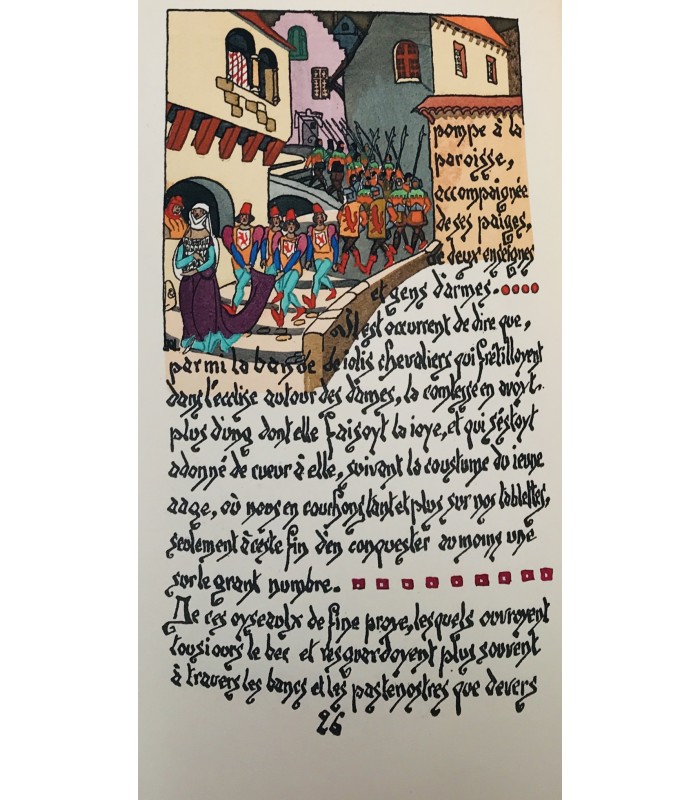 pompe à la
paroisse,
accompaignée
de ses paiges,
de deux enseignes
et gens d'armes.
Il est occurrent de dire que,
parmi la bande de iolis chevaliers qui frétilloyent
dans l'ecclise autour des dames, la comtesse en avoyt
plus d'ung dont elle faisoyt la ioye, et qui s'estoyt
adonné de cueur à elle, suivant la coustume du ieune
aage, où nous en couchons tant et plus sur nos tablettes,
seulement à ceste fin d'en conquester au moins une
sur le grant numbre.
De ces oyseaulx de fine proye, lesquels ouvroyent
tousiours le bec et resguardoyent plus souvent
à travers les bancs et les pastenostres que devers
26